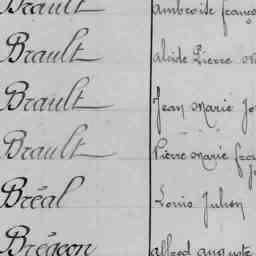 Brault Ambroise franço
Brault alcide Pierre
Brault Jean Marie Jo
Brault Pierre Marie fra
Bréal Louis Julien
Brégeon alfred auguste